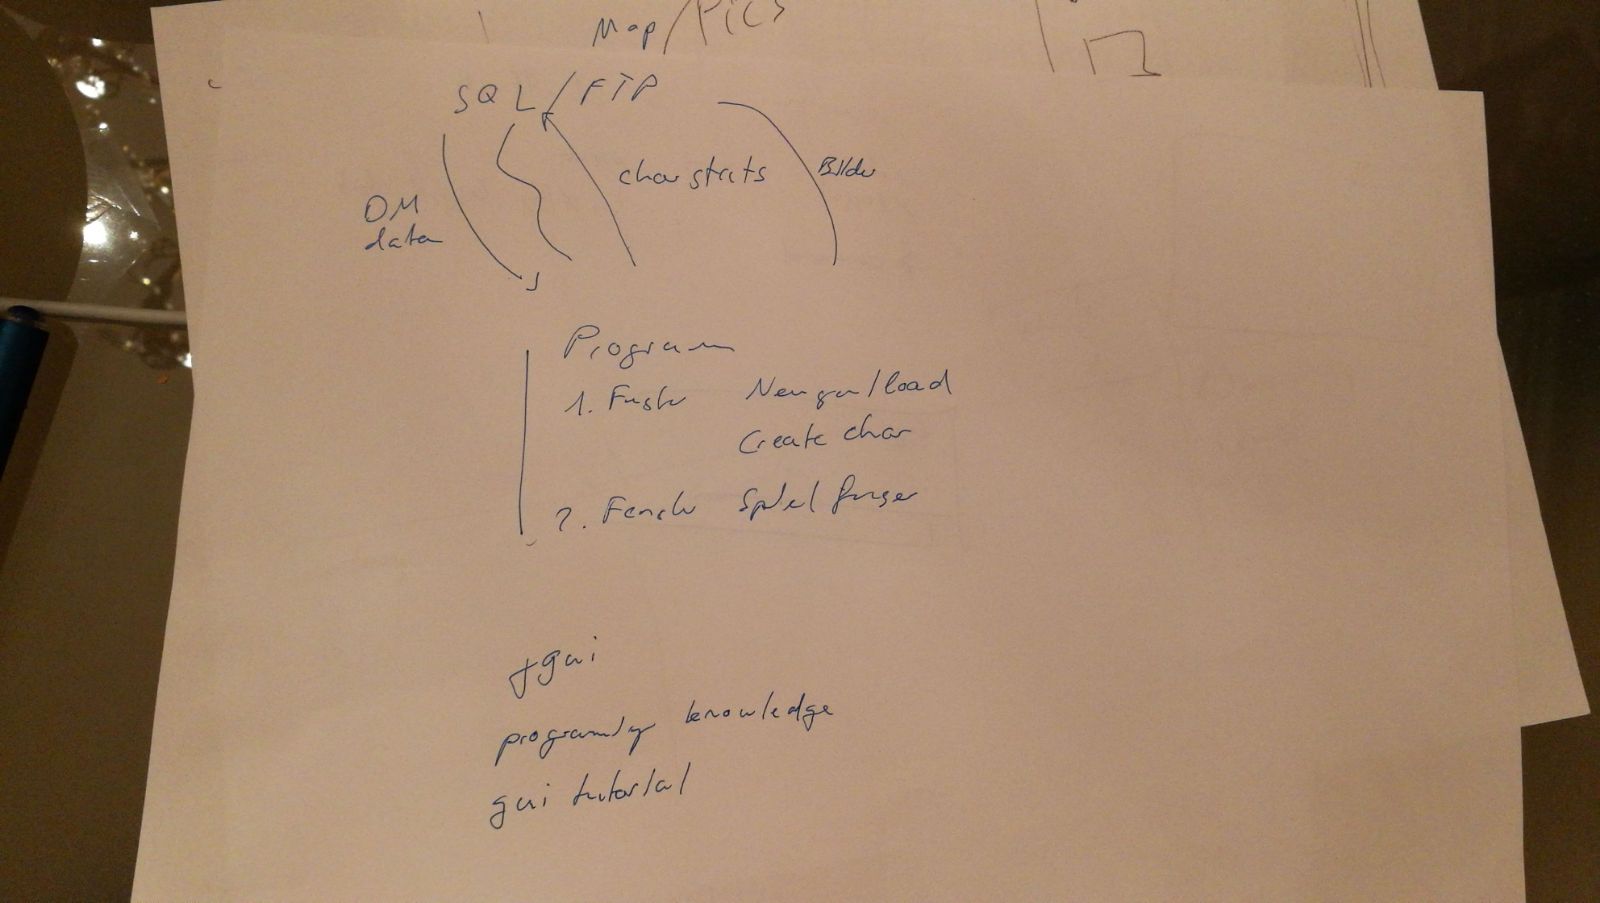 Map/Pics
SQL/FTP
char stats
Bilder
DM
data
Program
1. Fenster Newgame/load
Create char
2. Fenster Spiel
gui
programming knowledge
gui tutorial